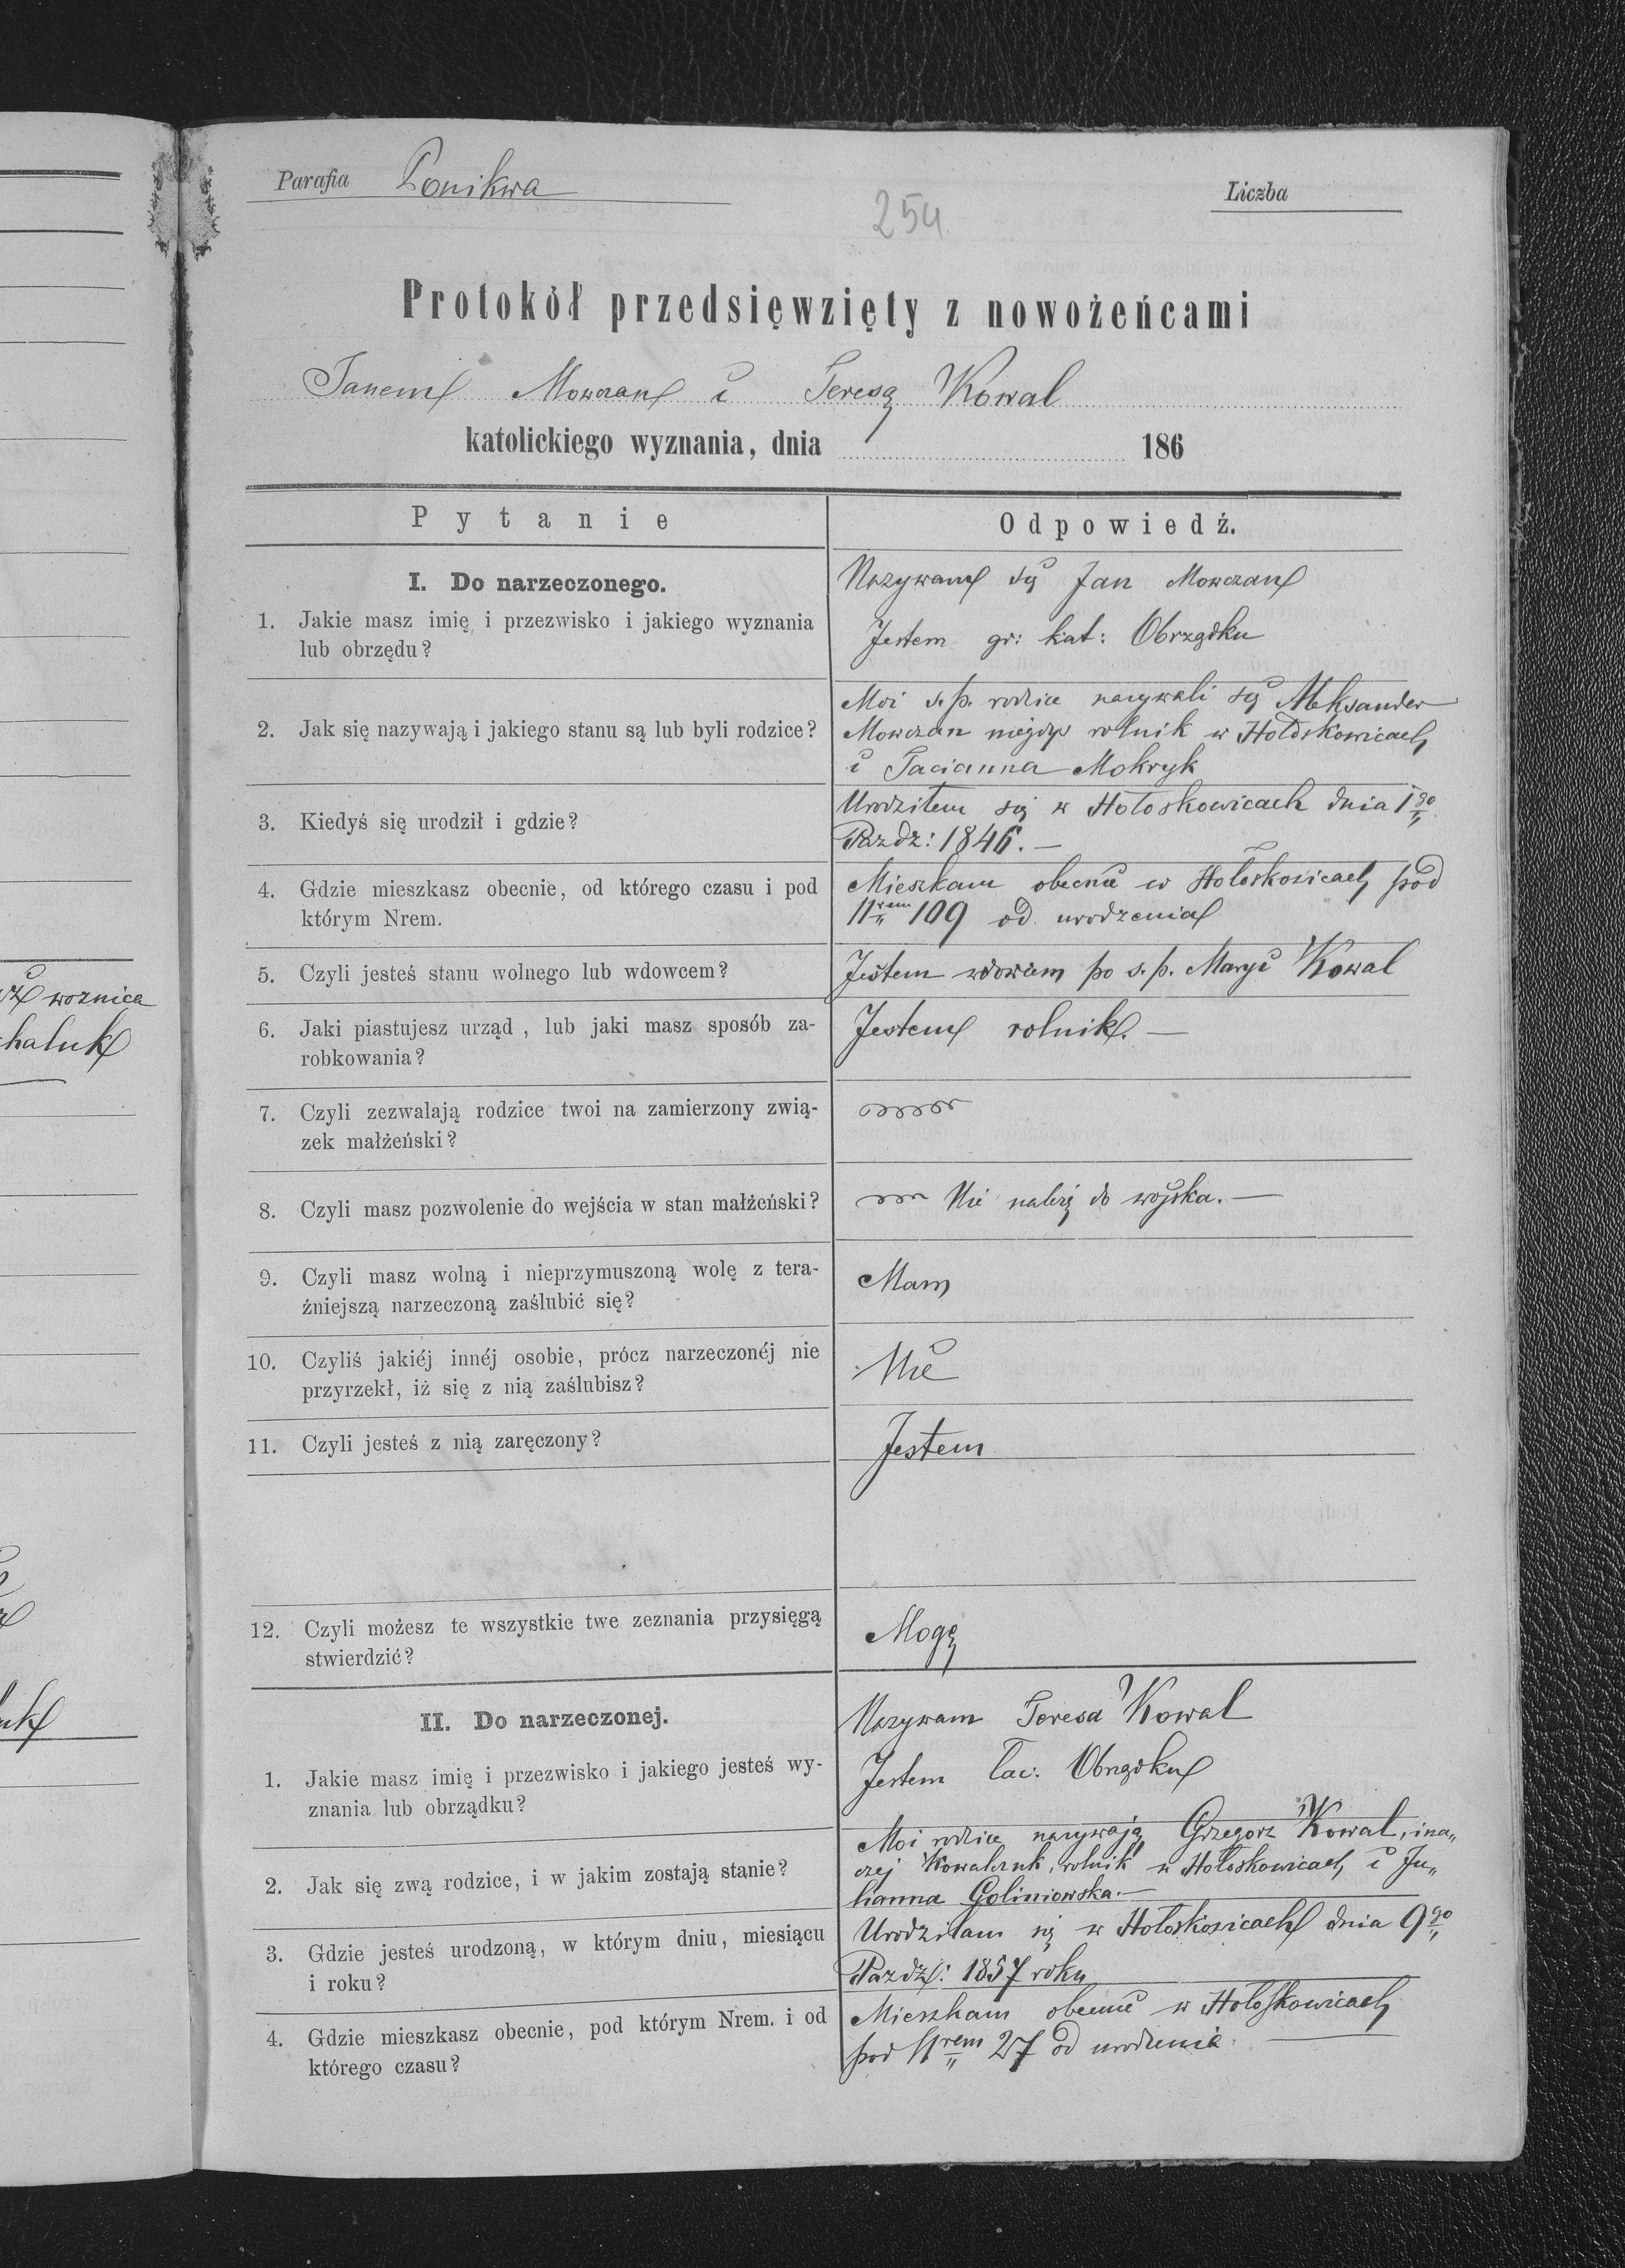 Parafia Ponikwa
Liczba
254
Protokół przedsięwzięty z nowożeńcami
Janem Mowczan i Teresą Kowal
katolickiego wyznania, dnia 186
Pytanie
Odpowiedź.
I. Do narzeczonego.
1. Jakie masz imię i przezwisko i jakiego wyznania
lub obrzędu?
Nazywam się Jan Mowczan
Jestem gr: kat: Obrządku
2. Jak się nazywają i jakiego stanu są lub byli rodzice?
Moi s.p. rodzice nazywali się Aleksander
Mowczan niegdyś rolnik w Hołoskowicach
i Tacianna Mokryk
3. Kiedyś się urodził i gdzie?
Urodziłem się w Hołoskowicach dnia 1go
Pazdz: 1846.—
4. Gdzie mieszkasz obecnie, od którego czasu i pod
którym Nrem.
Mieszkam obecnie w Hołoskowicach pod
Nrem 109 od urodzenia
5. Czyli jesteś stanu wolnego lub wdowcem?
Jestem wdowcem po s.p. Maryi Kowal
6. Jaki piastujesz urząd, lub jaki masz sposób za-
robkowania?
Jestem rolnik.—
7. Czyli zezwalają rodzice twoi na zamierzony zwią-
zek małżeński?
8. Czyli masz pozwolenie do wejścia w stan małżeński?
Nie należę do wojska.—
9. Czyli masz wolną i nieprzymuszoną wolę z tera-
źniejszą narzeczoną zaślubić się?
Mam
10. Czyliś jakiéj innéj osobie, prócz narzeczonéj nie
przyrzekł, iż się z nią zaślubisz?
Nie
11. Czyli jesteś z nią zaręczony?
Jestem
12. Czyli możesz te wszystkie twe zeznania przysięgą
stwierdzić?
Mogę
II. Do narzeczonej.
1. Jakie masz imię i przezwisko i jakiego jesteś wy-
znania lub obrządku?
Nazywam Teresa Kowal
Jestem łac: Obrządku
2. Jak się zwą rodzice, i w jakim zostają stanie?
Moi rodzice nazywają Grzegorz Kowal, ina„
czej Kowalczuk, rolnik w Hołoskowicach i Ju„
lianna Goliniowska.—
3. Gdzie jesteś urodzoną, w którym dniu, miesiącu
i roku?
Urodziłam się w Hołoskowicach dnia 9go
Pazdz: 1857 roku
4. Gdzie mieszkasz obecnie, pod którym Nrem. i od
którego czasu?
Mieszkam obecnie w Hołoskowicach
pod Nrem 27 od urodzenia.—
woznica